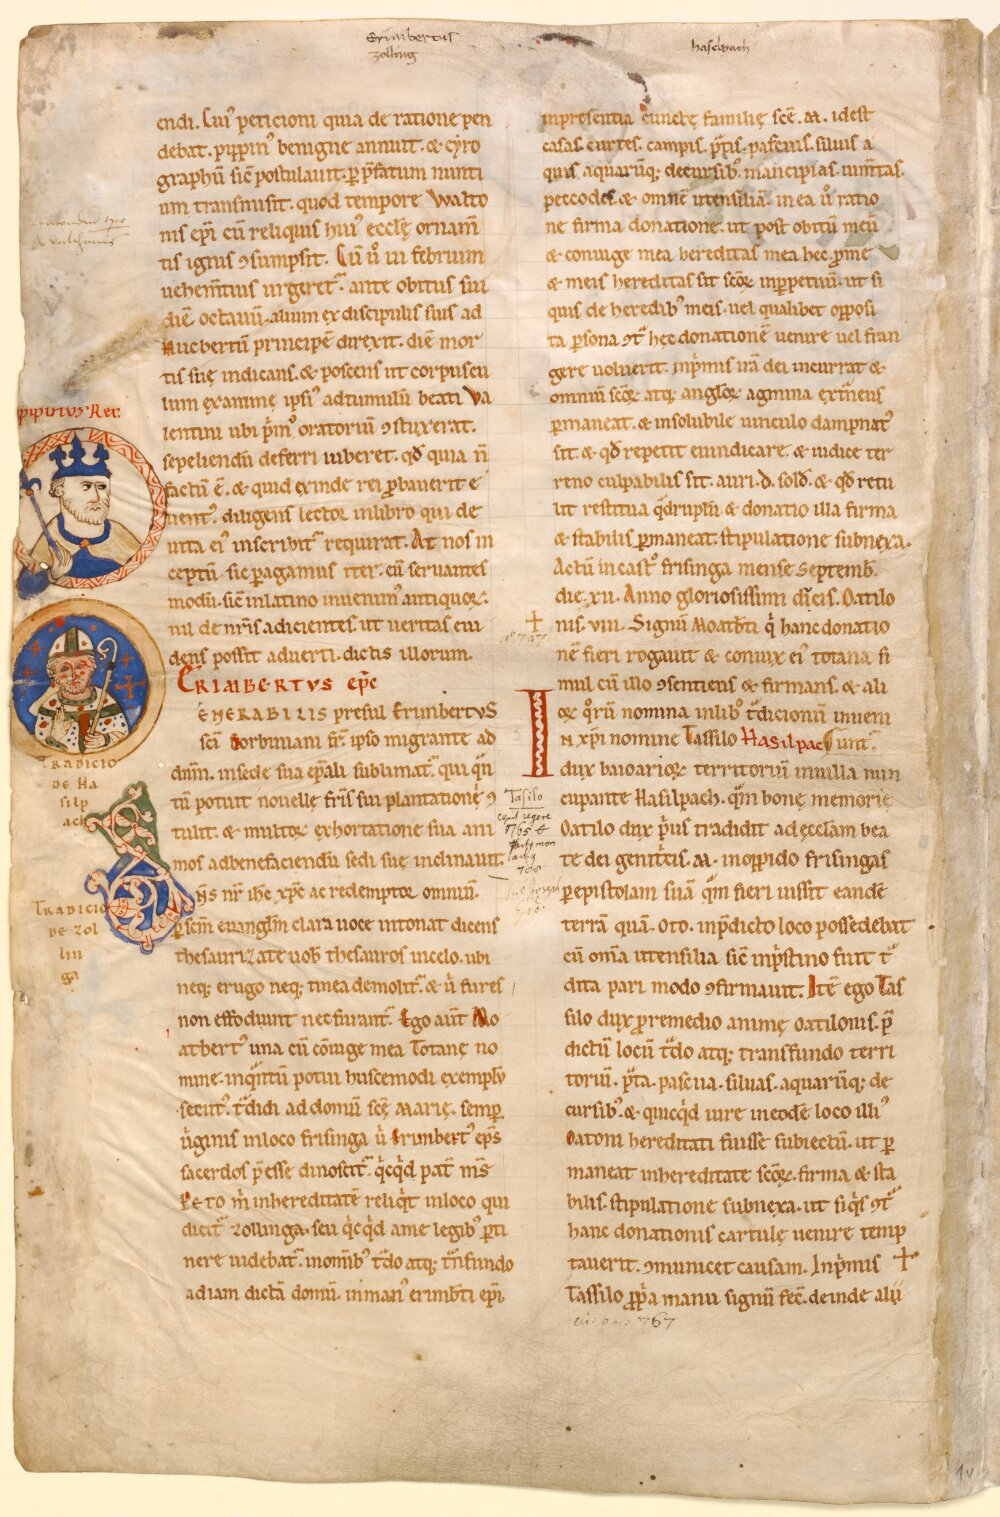 Erimbertus
zolling
haselpach
endi. Cui' peticioni quia de ratione pen
debat. pippin' benigne annuit. & cyro
graphū sic̄ postulauit. p̱ p̄fatum nunti
um transmisit. quod tempore Walto
nis ep̄i cū reliquis hui' ecclę ornam̄
tis ignis ꝯsumpsit. Cū ů ui febrium
uehem̄tius urgeret᷑. ante obitus sui
diē octauū. alium ex discipulis suis ad
hucbertū principē direxit. diē mor
tis suę indicans. & poscens ut corpuscu
lum exanime ipsi' ad tumulū beati Va
lentini ubi p̄m' oratoriū ꝯstuxerat.
sepeliendū deferri iuberet. qđ quia n̄
factū ē. & quid exinde rei ꝓbauerit e
uent'. diligens lector in libro qui de
uita ei' inscribit᷑ requirat. At nos in
ceptū sic ꝑagamus iter. cū seruantes
modū. sic̄ in latino inuenim' antiquoꝝ.
nil de nr̄is adicientes. ut ueritas eui
dens possit aduerti. dictis illorum.
ERIMBERTVS ep̄c
ENERABILIS presul ErimbertuS
sc̄i Corbiniani fr̄. ipso migrante ad
dn̄m. in sede sua ep̄ali sublimat᷑. qui qn̄
tū potuit nouellę fr̄is sui plantationę ꝯ
tulit. & multoꝝ exhortatione sua ani
mos ad benefaciendū sedi suę inclinauit.
n̄s nr̄ ih̄c xp̄c ac redemptor omniū.
ꝑ scm̄ euanglm̄ clara uoce intonat dicens
thesaurizate uob̄ thesauros in celo. ubi
neq; erugo neq; tinea demolit᷑. & ů fures
non effodiunt nec furant᷑. Ego aut̄ Mo
atbert' una cū cōiuge mea Totanę no
mine. inq̄ntū potui huscemodi exemplū
secut'. t᷑didi ad domū scę̄ MARIE. semp̱
ůginis in loco frisinga ů Erimbert' ep̄s
sacerdos p̄esse dinoscit᷑. q̇cq̇d pat̄ m̄s
PETO ṁ in hereditatē reliq̇t in loco qui
dicit᷑ zollinga. seu q̇cq̇d ame legib' ꝑti
nere uidebat᷑. in om̄ib' t᷑do atq; t᷑nsfundo
ad iam dictā domū. in man' erimb̄ti ep̄i
pipinus Rex
TRADICIO
DE HA
silp
ach
TRADICIO
DE zol
lin
ga
in presentia cunctę familię scę̄. M. id est
casas. curtes. campis. p̄tis. pascuis. siluis a
quis. aquarūq; decursib'. mancipias. ium̄tas.
peccodes. & omnē utensiliā. in ea ů ratio
ne firma donatione. ut post obitū meū
& coniuge mea hereditas mea hec. ꝓ me
& meis hereditas sit scōꝝ in ꝑpetuū. ut si
quis de heredib' meis. uel qualibet opposi
ta ꝑsona ꝯt᷑ hec donationē uenire uel fran
gere uoluerit. inp̄mis irā dei incurrat &
omniū scōꝝ atq; angloꝝ agmina ext̄neus
ꝑmaneat. & insolubile uinculo dampnat'
sit. & qđ repetit euindicare. & iudice ter
reno culpabilis sit. auri. d. sold. & qđ retu
lit restitua q̄druplū & donatio illa firma
& stabilis ꝑmaneat. stipulatione subnexa.
Actū in cast' frisinga mense Septemb.
die xii. Anno gloriosissimi ducis. Oatilo
nis. viii. Signū Moatb̄ti q̇ hanc donatio
nē fieri rogauit & coniux ei' totana si
mul cū illo ꝯsentiens & firmans. & ali
oꝝ q̊rū nomina in lib' t᷑dicionū inueni
unt᷑.
N xp̄i nomine Tassilo HAsilpac
dux baioarioꝝ territoriū in uilla nun
cupante Hasilpach. qm̄ bonę memorię
Oatilo dux p̄us tradidit ad eccl̄am bea
te dei genit̄cis. M. in oppido frisingas
ꝑ epistolam suā qm̄ fieri iussit eandē
terrā quā. Oto. in p̄dicto loco possedebat
cū om̄ia utensilia sic̄ in p̄stino fuit t᷑
dita pari modo ꝯfirmauit. Itē ego Tas
silo dux ꝓ remedio animę oatilonis. p̄
dictū locū t᷑do atq; transfundo terri
toriū. p̄ta. pascua. siluas. aquarūq; de
cursib'. & quicq̇d iure in eodē loco illi'
Oatoni hereditati fuisse subiectū. ut ꝑ
maneat in hereditate scōꝝ. firma & sta
bilis. stipulatione subnexa. ut siq̇s ꝯt᷑
hanc donationis cartulę uenire temp
tauerit. ꝯmunicet causam. Inp̄mis
Tassilo ꝓp̄a manu signū fec̄. deinde alii
Tasilo
cepit regere
765 &
767
1v